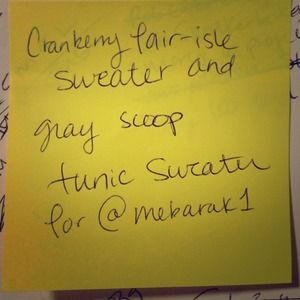 Cranberry fair-isle
sweater and
gray scoop
tunic sweater
for @mebarak1